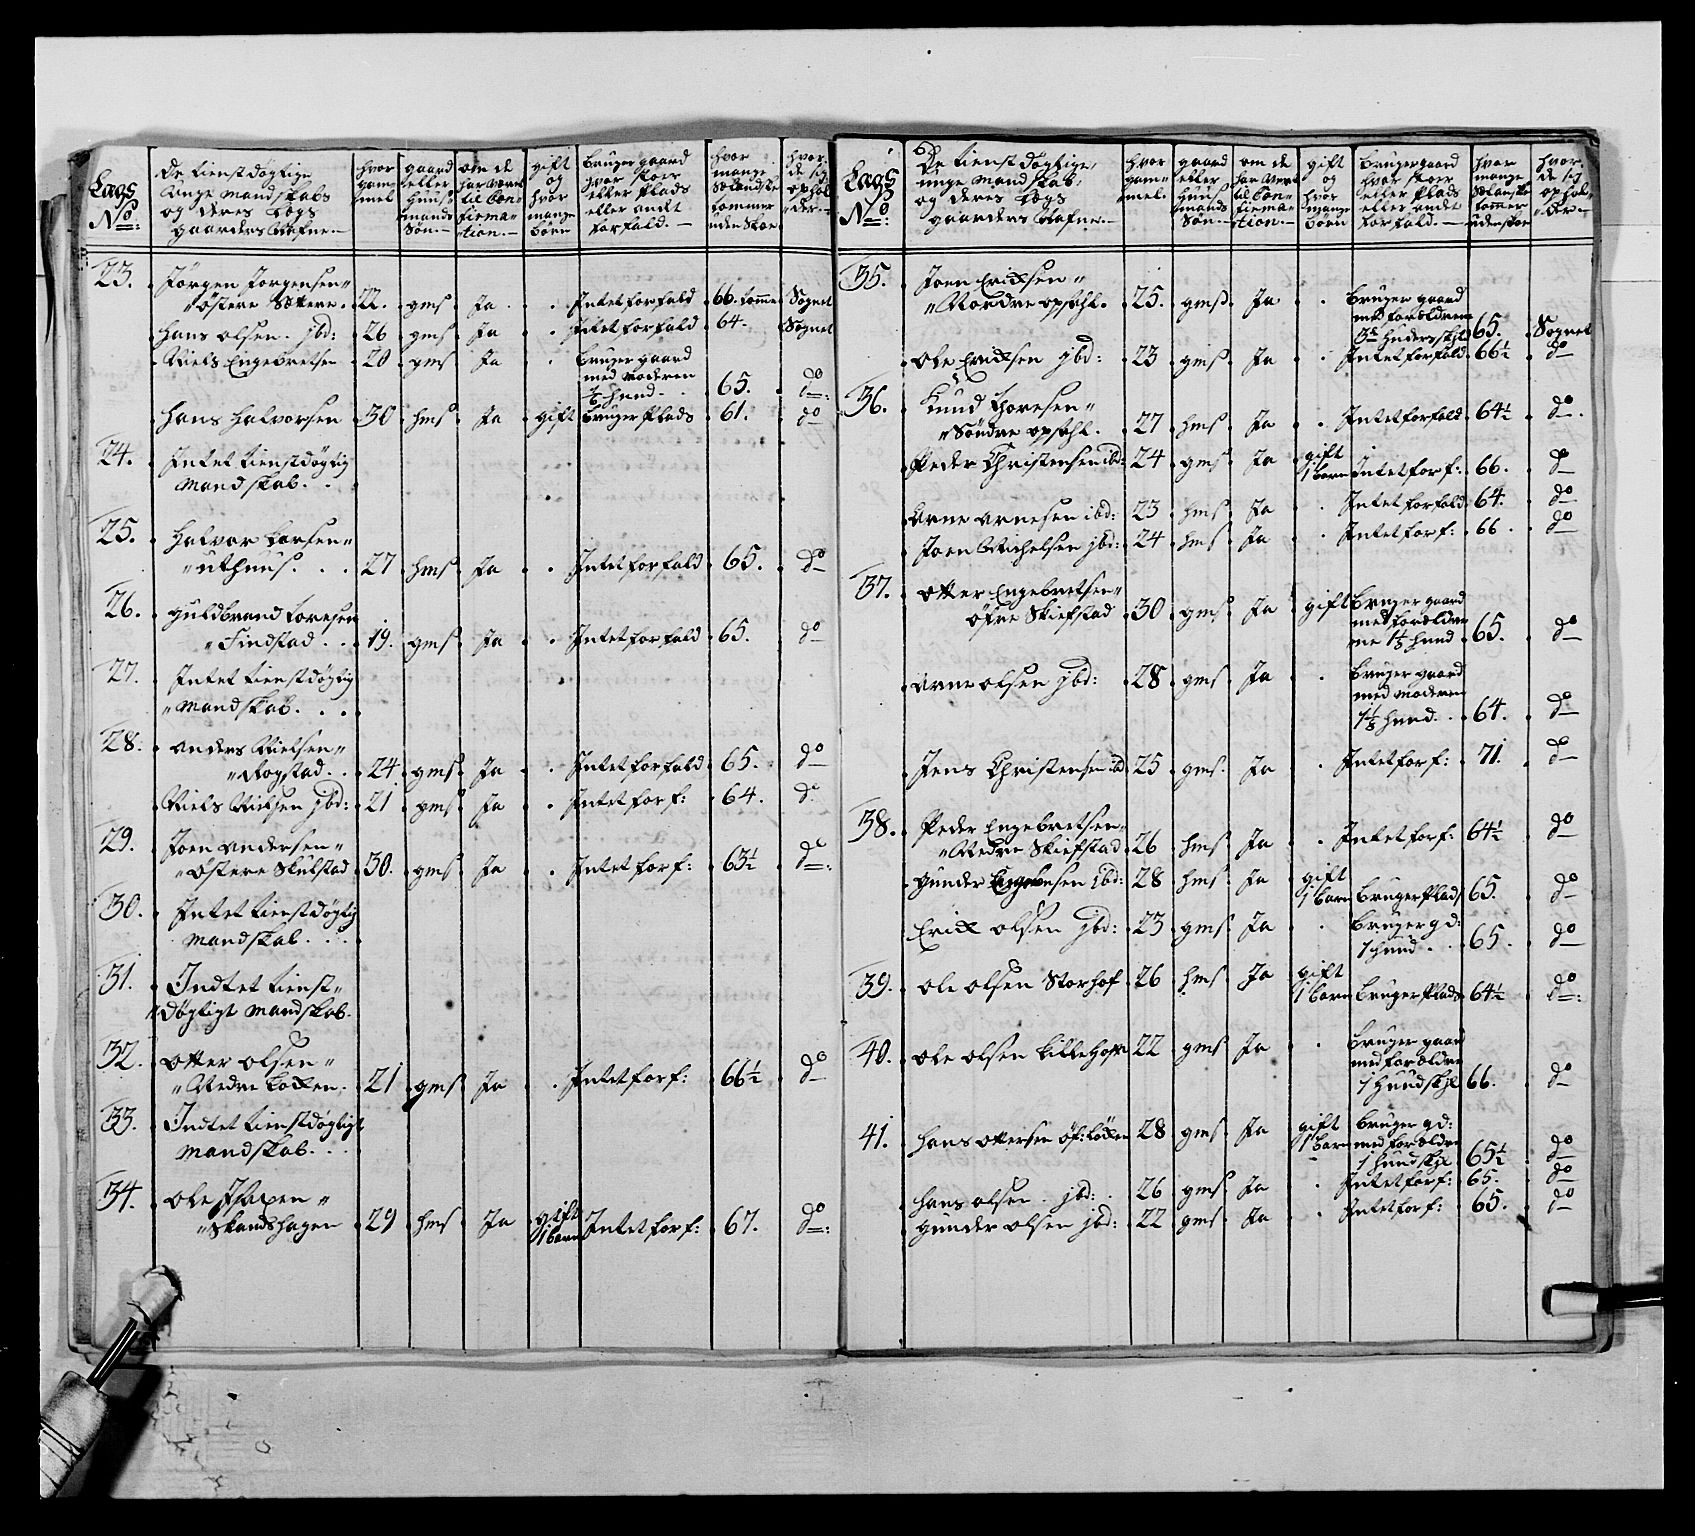 Lægs No:
De tienstdøgtige unge mandskabs og deres Lægs gaarders Nafne
hvor gammel
gaard eller huusmands Søn
om de har været til Confirmation
gift og hvor mange børn
bruger gaard hvor stoer eller plads eller andt forfald
hvor mange Sælandske tommer uden Skoe
hvor de sig opholder
23. Jørgen Jorgensen
østere Sættere 22. gms. Ja Intet forfald 66 tomme Sognet
Hans olsen jbd: 26 gms. Ja Intet forfald 64. Sognet
Niels Engebretsen 20 gms Ja bruger gaard
med moderen
hund 65. do
Hans Halvorsen 30 hms. Ja gift bruger Plads 61. do
24. Intet tienstdøgtig
mandskab
25. Halvor Larsen
uthuus. 27 hms. Ja Intet forfald 65. do
26. Guldbrand Toresen
Findstad 19. gms. Ja Intet forfald 65. do
27. Intet tienstdøgtig
mandskab.
28. Anders Nielsen
Rogstad 24 gms. Ja Intet forfald 65. do
Niels Nielsen jbd: 21 gms Ja Intet forf: 64. do
29. Joen Andersen
østere Skulstad 30. gms. Ja Intet forf: 63½ do
30. Intet tienstdøgtig
mandskab.
31. Indtet tienst
døgtigt mandskab.
32. Otter olsen
Nedre Løken 21 gms. Ja Intet forf: 66½ do
33. Indtet tienstdøgtigt
mandskab.
34. Ole
Skandshagen 29 hms Ja gift
1 barn Intet forf: 67. do
Lægs No:
De tienstdøgtige unge mandskab og deres Lægs gaarders Nafne
hvor gammel
gaard eller huusmands Søn
om de har været til Confirmation
gift og hvor mange børn
bruger gaard hvor stoer eller plads eller andt forfald
hvor mange Sælanske tommer uden skoe
hvor de sig opholder
35. Joen Ericksen
Nordre opsahl. 25. gms. Ja bruger gaard
med forældrene
65. Sognet
Ole Ericksen jbd: 23 gms. Ja Intet forfald 66½ do
36. Knud Thoresen
Søndre opsahl. 27 hms. Ja Intet forfald 64½ do
Peder Christensen ibd: 24 gms. Ja gift
1 barn Intet forf: 66. do
Arne Arnesen ibd: 23 hms. Ja Intet forfald 64. do
Joen Michelsen jbd: 24 hms Ja Intet forf: 66. do
37. Otter Engebretsen
øfre Skiefstad 30 gms. Ja gift bruger gaard
med forældre
ne hund 65. do
Arne olsen jbd: 28 gms. Ja bruger gaard
med moderen
hund 64. do
Jens Christensen ibd 25 gms. Ja Intet forf: 71. do
38. Peder Engebretsen
Nedre Skiefstad 26 hms. Ja Intet forf: 64½ do
Gunder jbd: 28 hms. Ja gift
1 barn bruger Plads 65. do
Erick olsen jbd: 23 gms. Ja bruger gd:
1 hund 65. do
39. Ole olsen Storhof 26 hms Ja gift
1 barn bruger Plads 64½ do
40. Ole olsen Lillehof 22 gms Ja bruger gaar
med forældre
1 hund skl 66. do
41. Hans ottersen øf: Løken 28 gms. Ja gift
1 barn bruger gd:
med forældre
1 hund skl 65½ do
Hans olsen jbd: 26 gms. Ja Intet forf: 65. do
Gunder olsen jbd: 22 gms. Ja Intet forf: 65. do